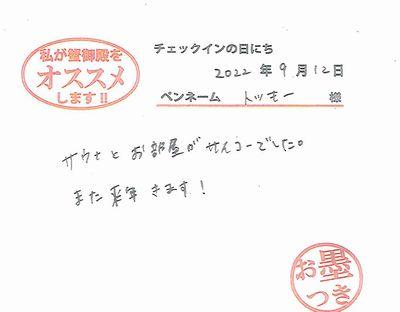 私が蟹御殿を
オススメ
します!!
チェックインの日にち
2022 年 9 月 12 日
ペンネーム トッモー 様
サウナとお部屋がサイコーでした。
また来年きます！
お墨
つき